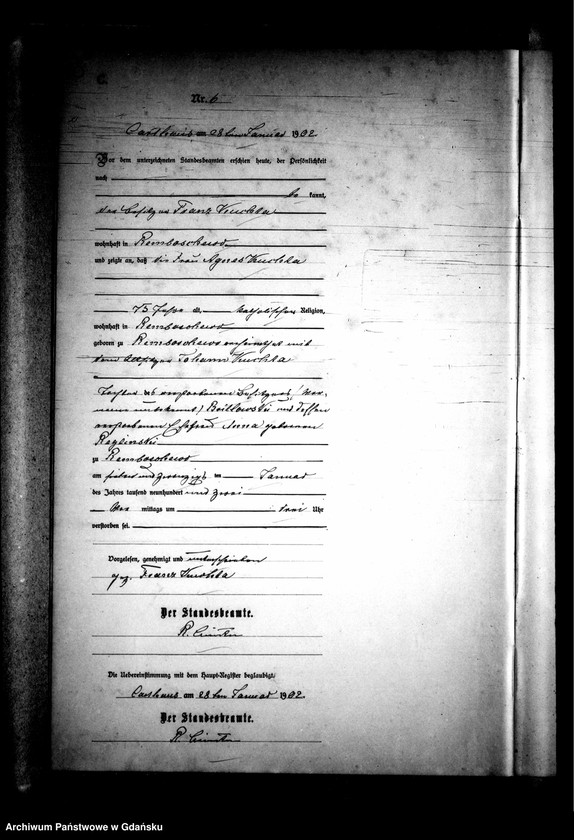 C.
Nr. 6
Carthaus am 28 ten Januar 1902
Vor dem unterzeichneten Standesbeamten erschien heute, der Persönlichkeit
nach
be kannt,
der Besitzer Franz
wohnhaft in Remboschewo
und zeigte an, daß die Frau Agnes
75 Jahre alt, katholischer Religion,
wohnhaft in Remboschewo
geboren zu Remboschewo verheirathet mit
dem Johann
Tochter des verstorbenen Besitzers (Vor-
name unbekannt) und dessen
verstorbenen Ehefrau Anna geborenen
zu Remboschewo
am sieben und zwanzigsten Januar
des Jahres tausend neunhundert und zwei
Vor mittags um drei Uhr
verstorben sei.
Vorgelesen, genehmigt und unterschrieben
gez. Franz
Der Standesbeamte.
R.
Die Uebereinstimmung mit dem Haupt-Register beglaubigt.
Carthaus am 28 ten Januar 1902.
Der Standesbeamte.
R.
Archiwum Państwowe w Gdańsku